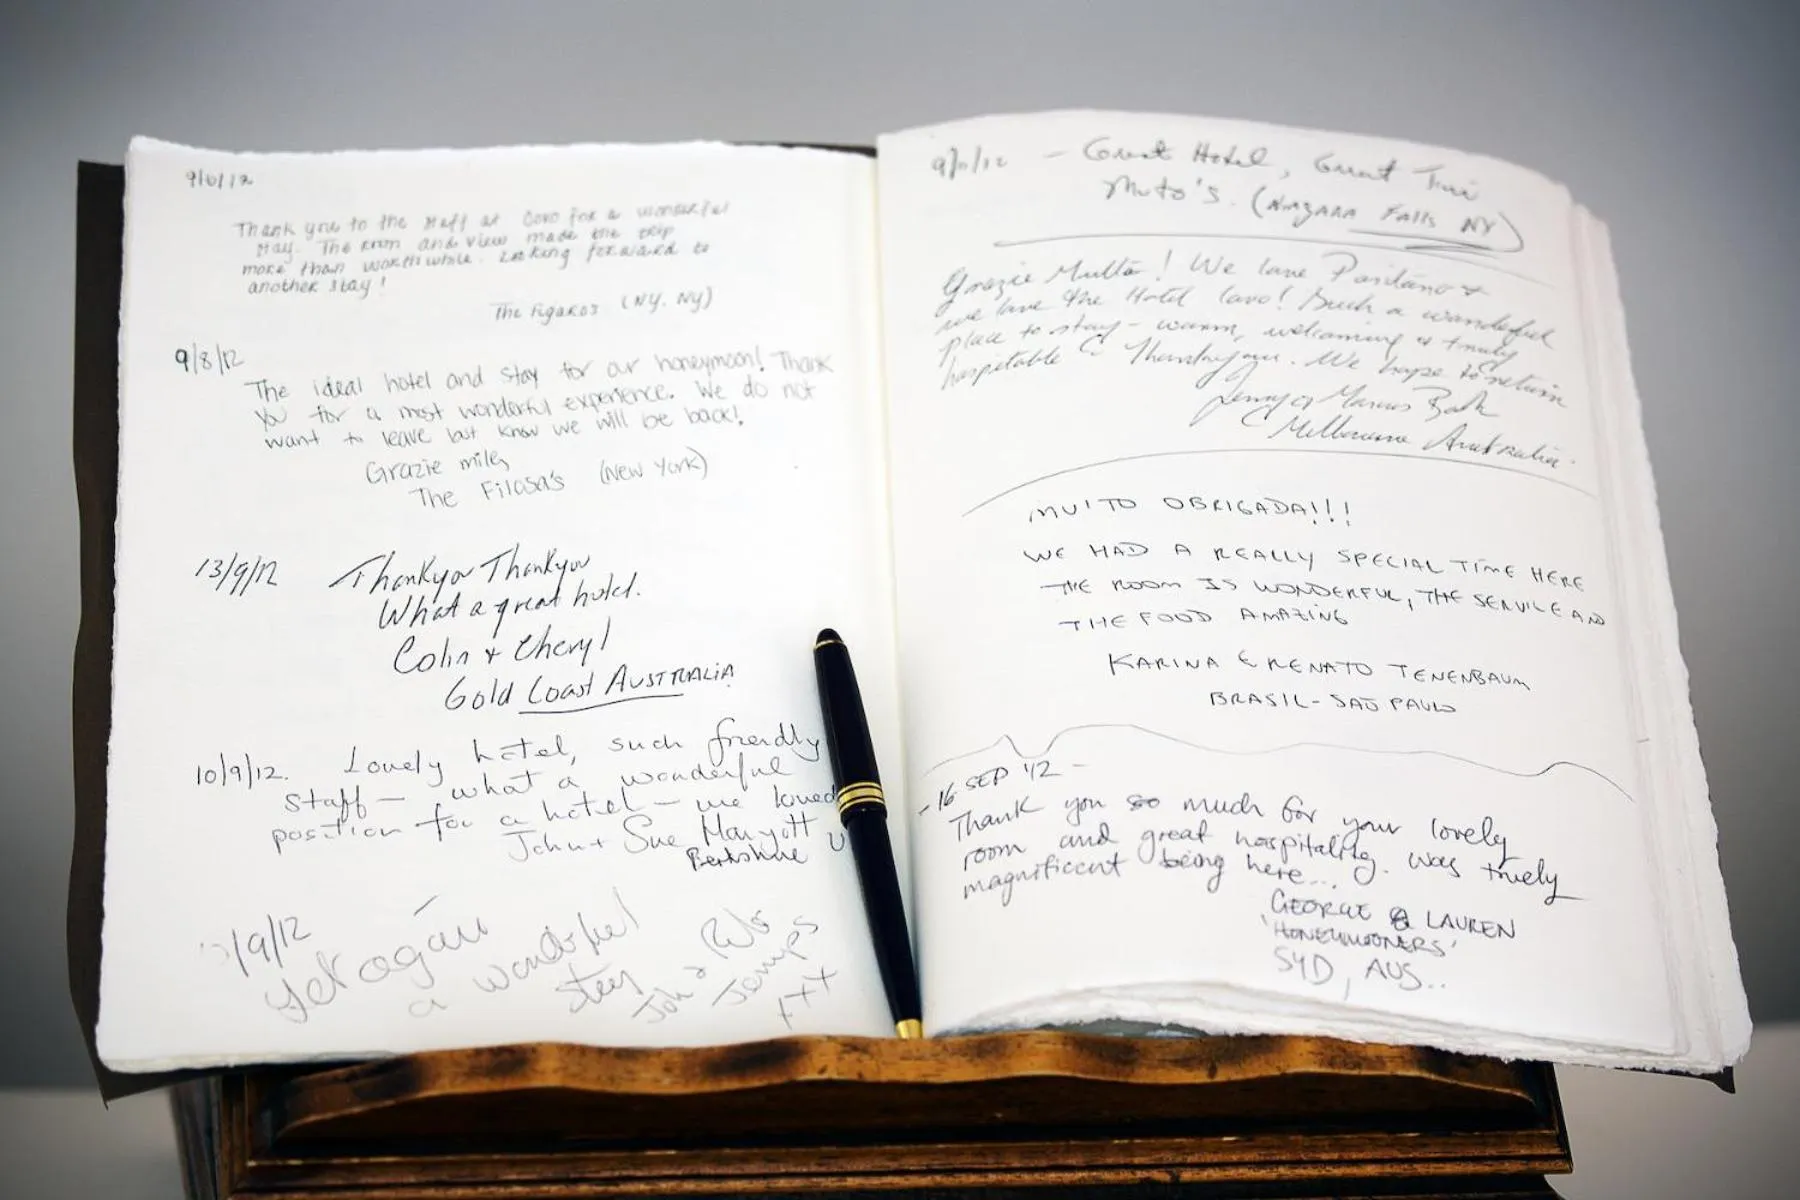 9/6/12
Thank you to the staff at Covo for a wonderful
stay. The room and view made the trip
more than worthwhile. Looking forward to
another stay!
The Figaros (NY, NY)
9/8/12
The ideal hotel and stay for our honeymoon! Thank
you for a most wonderful experience. We do not
want to leave but know we will be back!
Grazie mille,
The Filosa's (New York)
13/9/12 Thankyou Thankyou
What a great hotel.
Colin & Cheryl
Gold Coast AUSTRALIA
10/9/12. Lovely hotel, such friendly
staff - what a wonderful
position for a hotel - we loved
John + Sue Maryott U
Berkshire
/9/12
Yet again
a wonderful
stay
xxx
9/10/12 - Great Hotel, Great Time
Muto's. (Niagara Falls NY)
Grazie Multa! We love Positano &
we love the Hotel Covo! Such a wonderful
place to stay - warm, welcoming & truly
hospitable. Thankyou. We hope to return
Marcus
Melbourne Australia.
MUITO OBRIGADA!!!
WE HAD A REALLY SPECIAL TIME HERE
THE ROOM IS WONDERFUL, THE SERVICE AND
THE FOOD AMAZING
KARINA & RENATO TENENBAUM
BRASIL - SAO PAULO
- 16 SEP '12 -
Thank you so much for your lovely
room and great hospitality. Was truely
magnificent being here...
GEORGE & LAUREN
'HONEYMOONERS'
SYD, AUS..